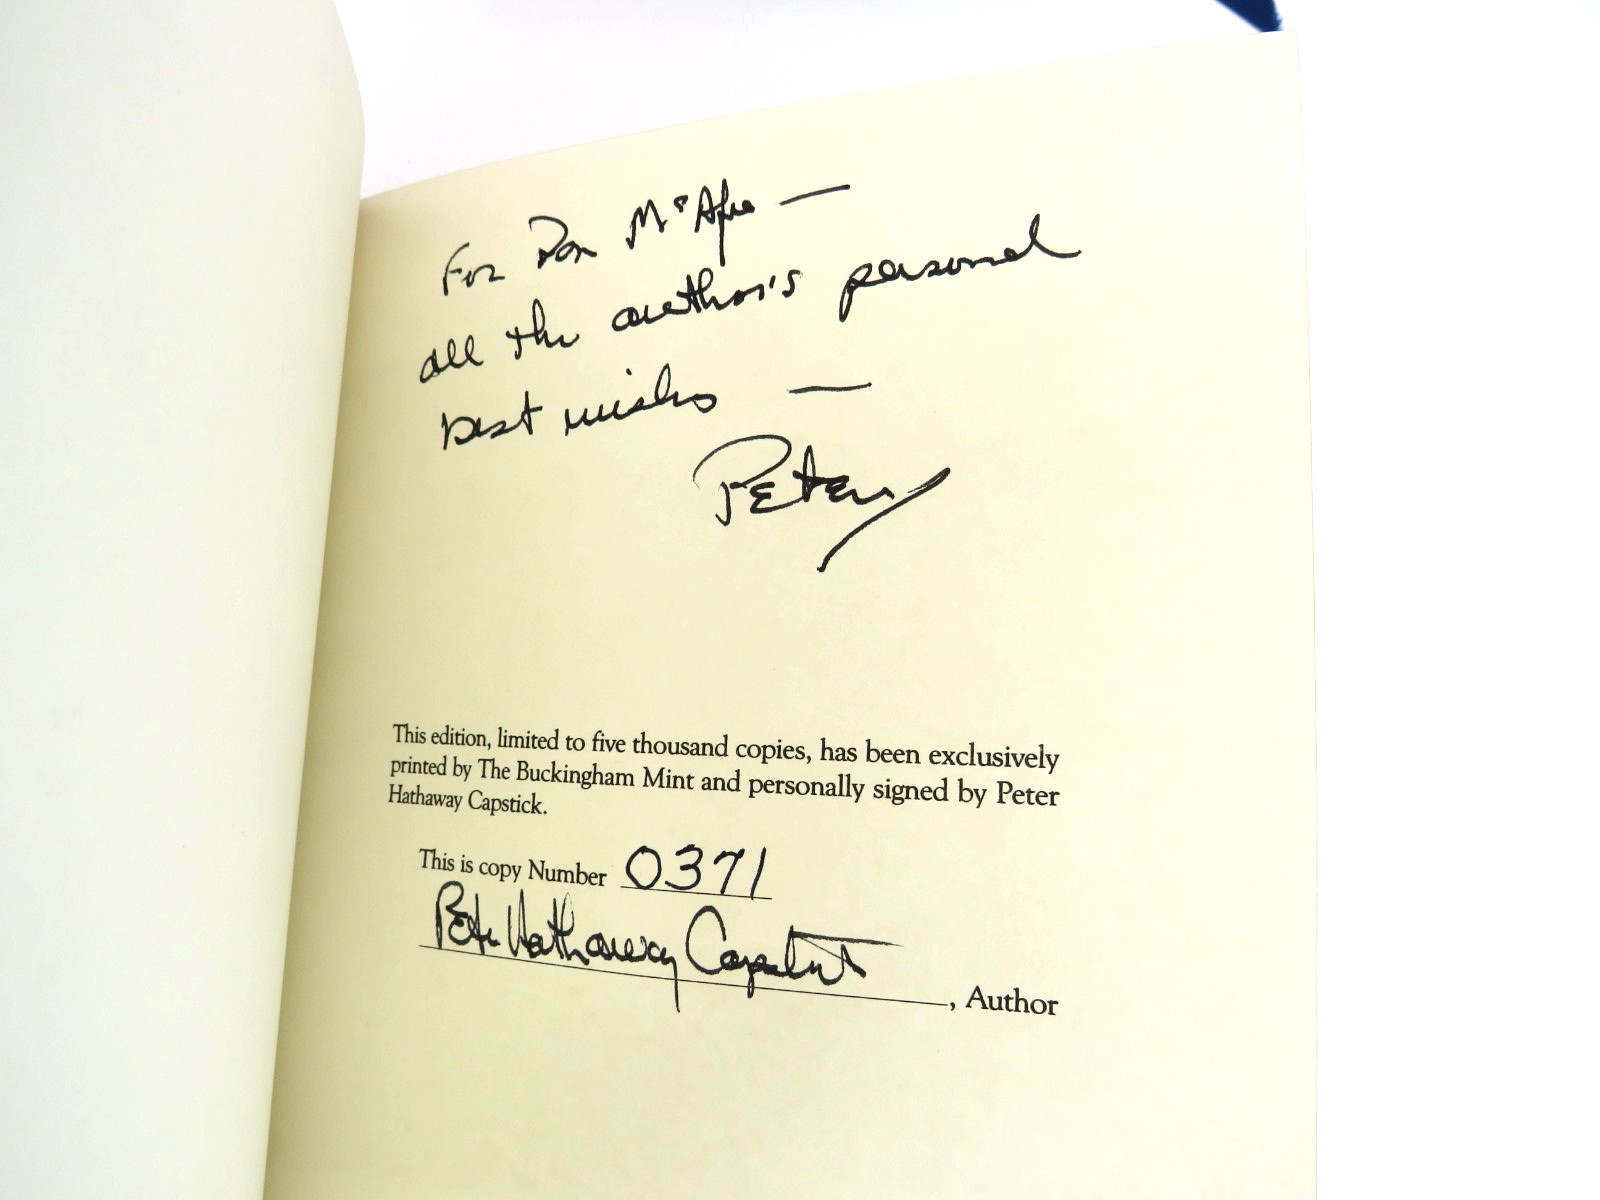 For Don McAfee —
all the author's personal
best wishes —
Peter
This edition, limited to five thousand copies, has been exclusively
printed by The Buckingham Mint and personally signed by Peter
Hathaway Capstick.
This is copy Number 0371
Peter Hathaway Capstick
, Author